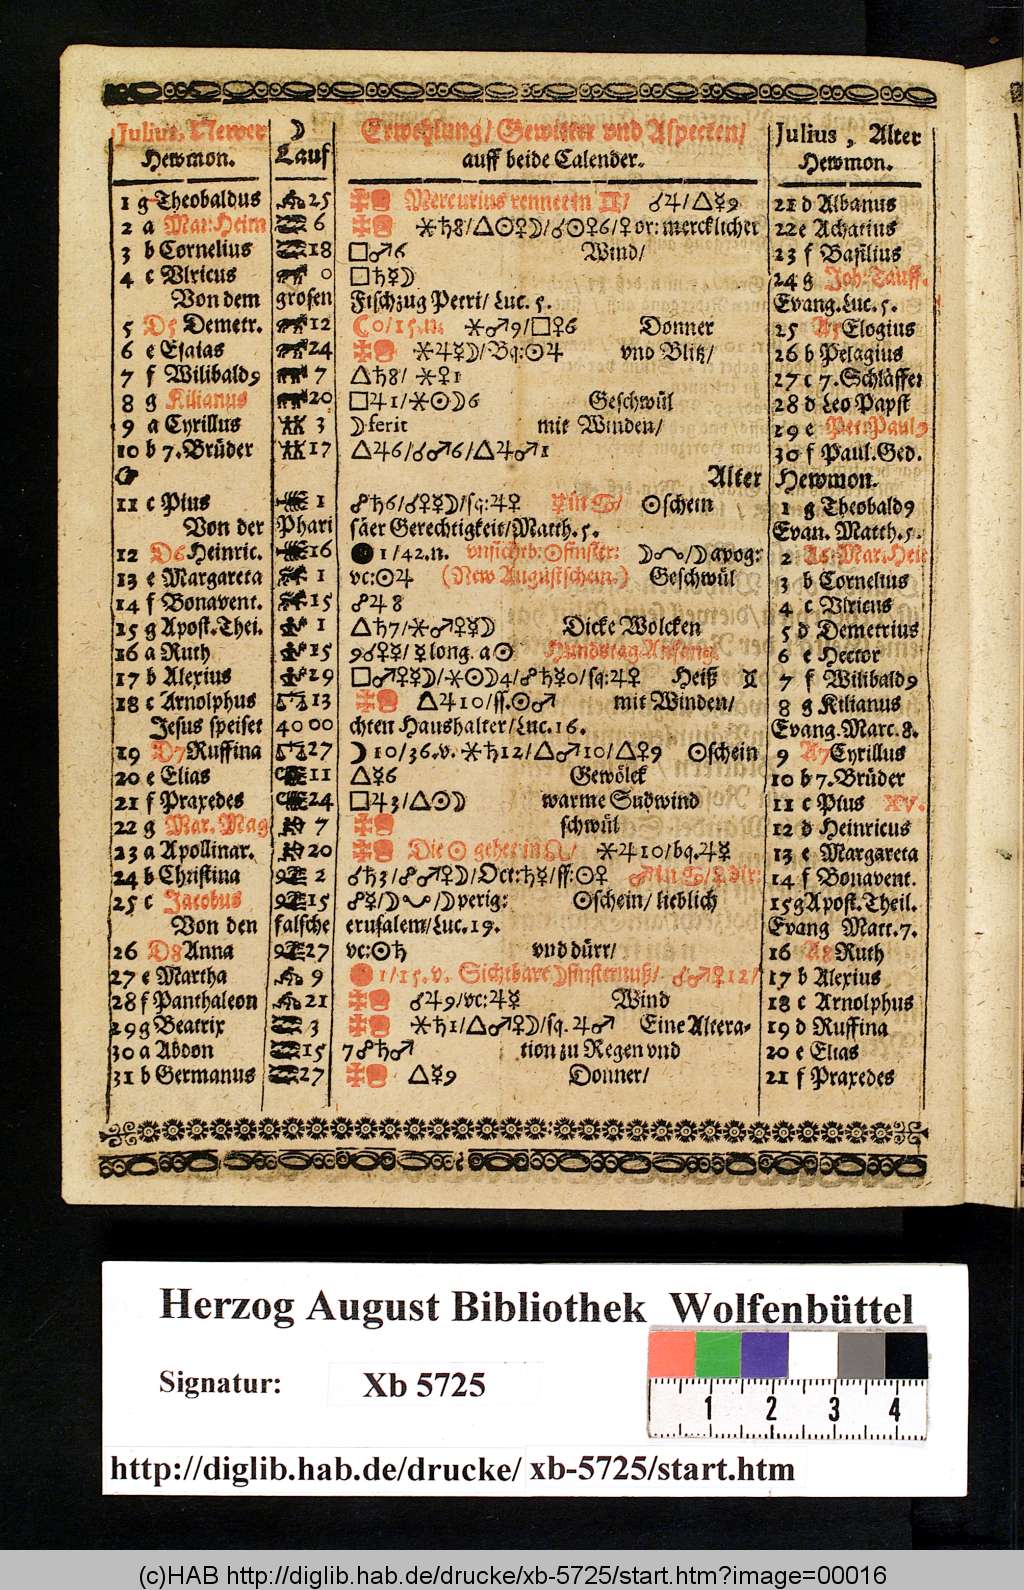 Julius, Newer ☽ Erwehlung/ Gewitter vnd Aspecten/ Julius, Alter
Hewmon. Lauff auff beide Calender. Hewmon.
1 g Theobaldus 25 Mercurius rennet in ♊/ ☌♃/△☿9 21 d Albanus
2 a Mar: Heim 6 ⚹♄8/△☉♀☽/☌☉♀6/♀or: mercklicher 22 e Achatius
3 b Cornelius 18 □♂6 Wind/ 23 f Basilius
4 c Vlricus 0 □♄☿☽ 24 g Joh: Tauff.
Von dem grosen Fischzug Petri/ Luc. 5. Evang. Luc. 5.
5 D5 Demetr. 12 ☾0/15.n. ⚹♂9/□♀6 Donner 25 A5 Elogius
6 e Esaias 24 ⚹♃☿☽/Bq:☉♃ vnd Blitz/ 26 b Pelagius
7 f Wilibald9 7 △♄8/ ⚹♀1 27 c 7. Schläffer
8 g Kilianus 20 □♃1/⚹☉☽6 Geschwül 28 d Leo Papst
9 a Cyrillus 3 ☽ferit mit Winden/ 29 e Pet: Paul9
10 b 7. Brüder 17 △♃6/☌♂6/△♃♂1 30 f Paul. Ged.
Alter Hewmon.
11 c Pius 1 ☍♄6/☌♀☿☽/sq:♃♀ ☿in♋/ ☉schein 1 g Theobald9
Von der Pharisäer Gerechtigkeit/Matth. 5. Evan. Matth. 5.
12 D6 Heinric. 16 ● 1/42.n. vnsichtb:☉finster: ☽/☽apog: 2 A6: Mar: Hei
13 e Margareta 1 vc:☉♃ (New Augustschein.) Geschwül 3 b Cornelius
14 f Bonavent. 15 ☍♃8 4 c Vlricus
15 g Apost. Thei. 1 △♄7/⚹♂♀☿☽ Dicke Wolcken 5 d Demetrius
16 a Ruth 15 9☌♀☿/☿long. a☉ Hundstag Anfang 6 e Hector
17 b Alexius 29 □♂♀☿☽/⚹☉☽4/☍♄☿0/sq:♃♀ Heiß ♊ 7 f Wilibald9
18 c Arnolphus 13 △♃10/ss.☉♂ mit Winden/ 8 g Kilianus
Jesus speiset 4000 chten Haushalter/Luc. 16. Evang. Marc. 8.
19 D7 Ruffina 27 ☽ 10/36.v. ⚹♄12/△♂10/△♀9 ☉schein 9 A7 Cyrillus
20 e Elias 11 △☿6 Gewölck 10 b 7. Brüder
21 f Praxedes 24 □♃3/△☉☽ warme Sudwind 11 c Pius XV.
22 g Mar. Mag 7 schwül 12 d Heinricus
23 a Apollinar. 20 Die ☉ gehet in ♌/ ⚹♃10/bq.♃☿ 13 e Margareta
24 b Christina 2 ☌♄3/☍♂♀☽/Oct:♄☿/ss:☉♀ ♂in♋/☿dir: 14 f Bonavent.
25 c Jacobus 15 ☍☿/☽/☽perig: ☉schein/ lieblich 15 g Apost. Theil.
Von den falsche erusalem/Luc. 19. Evang Matt. 7.
26 D8 Anna 27 vc:☉♄ vnd dürr/ 16 A8 Ruth
27 e Martha 9 1/15.v. Sichtbare ☽finsternuß/. ☌♂♀12/ 17 b Alexius
28 f Panthaleon 21 ☌♃9/vc:♃☿ Wind 18 c Arnolphus
29 g Beatrix 3 ⚹♄1/△♂♀☽/sq.♃♂ Eine Altera- 19 d Ruffina
30 a Abdon 15 7☍♄♂ tion zu Regen vnd 20 e Elias
31 b Germanus 27 △☿9 Donner/ 21 f Praxedes
Herzog August Bibliothek Wolfenbüttel
Signatur: Xb 5725
1 2 3 4
http://diglib.hab.de/drucke/ xb-5725/start.htm
(c)HAB http://diglib.hab.de/drucke/xb-5725/start.htm?image=00016